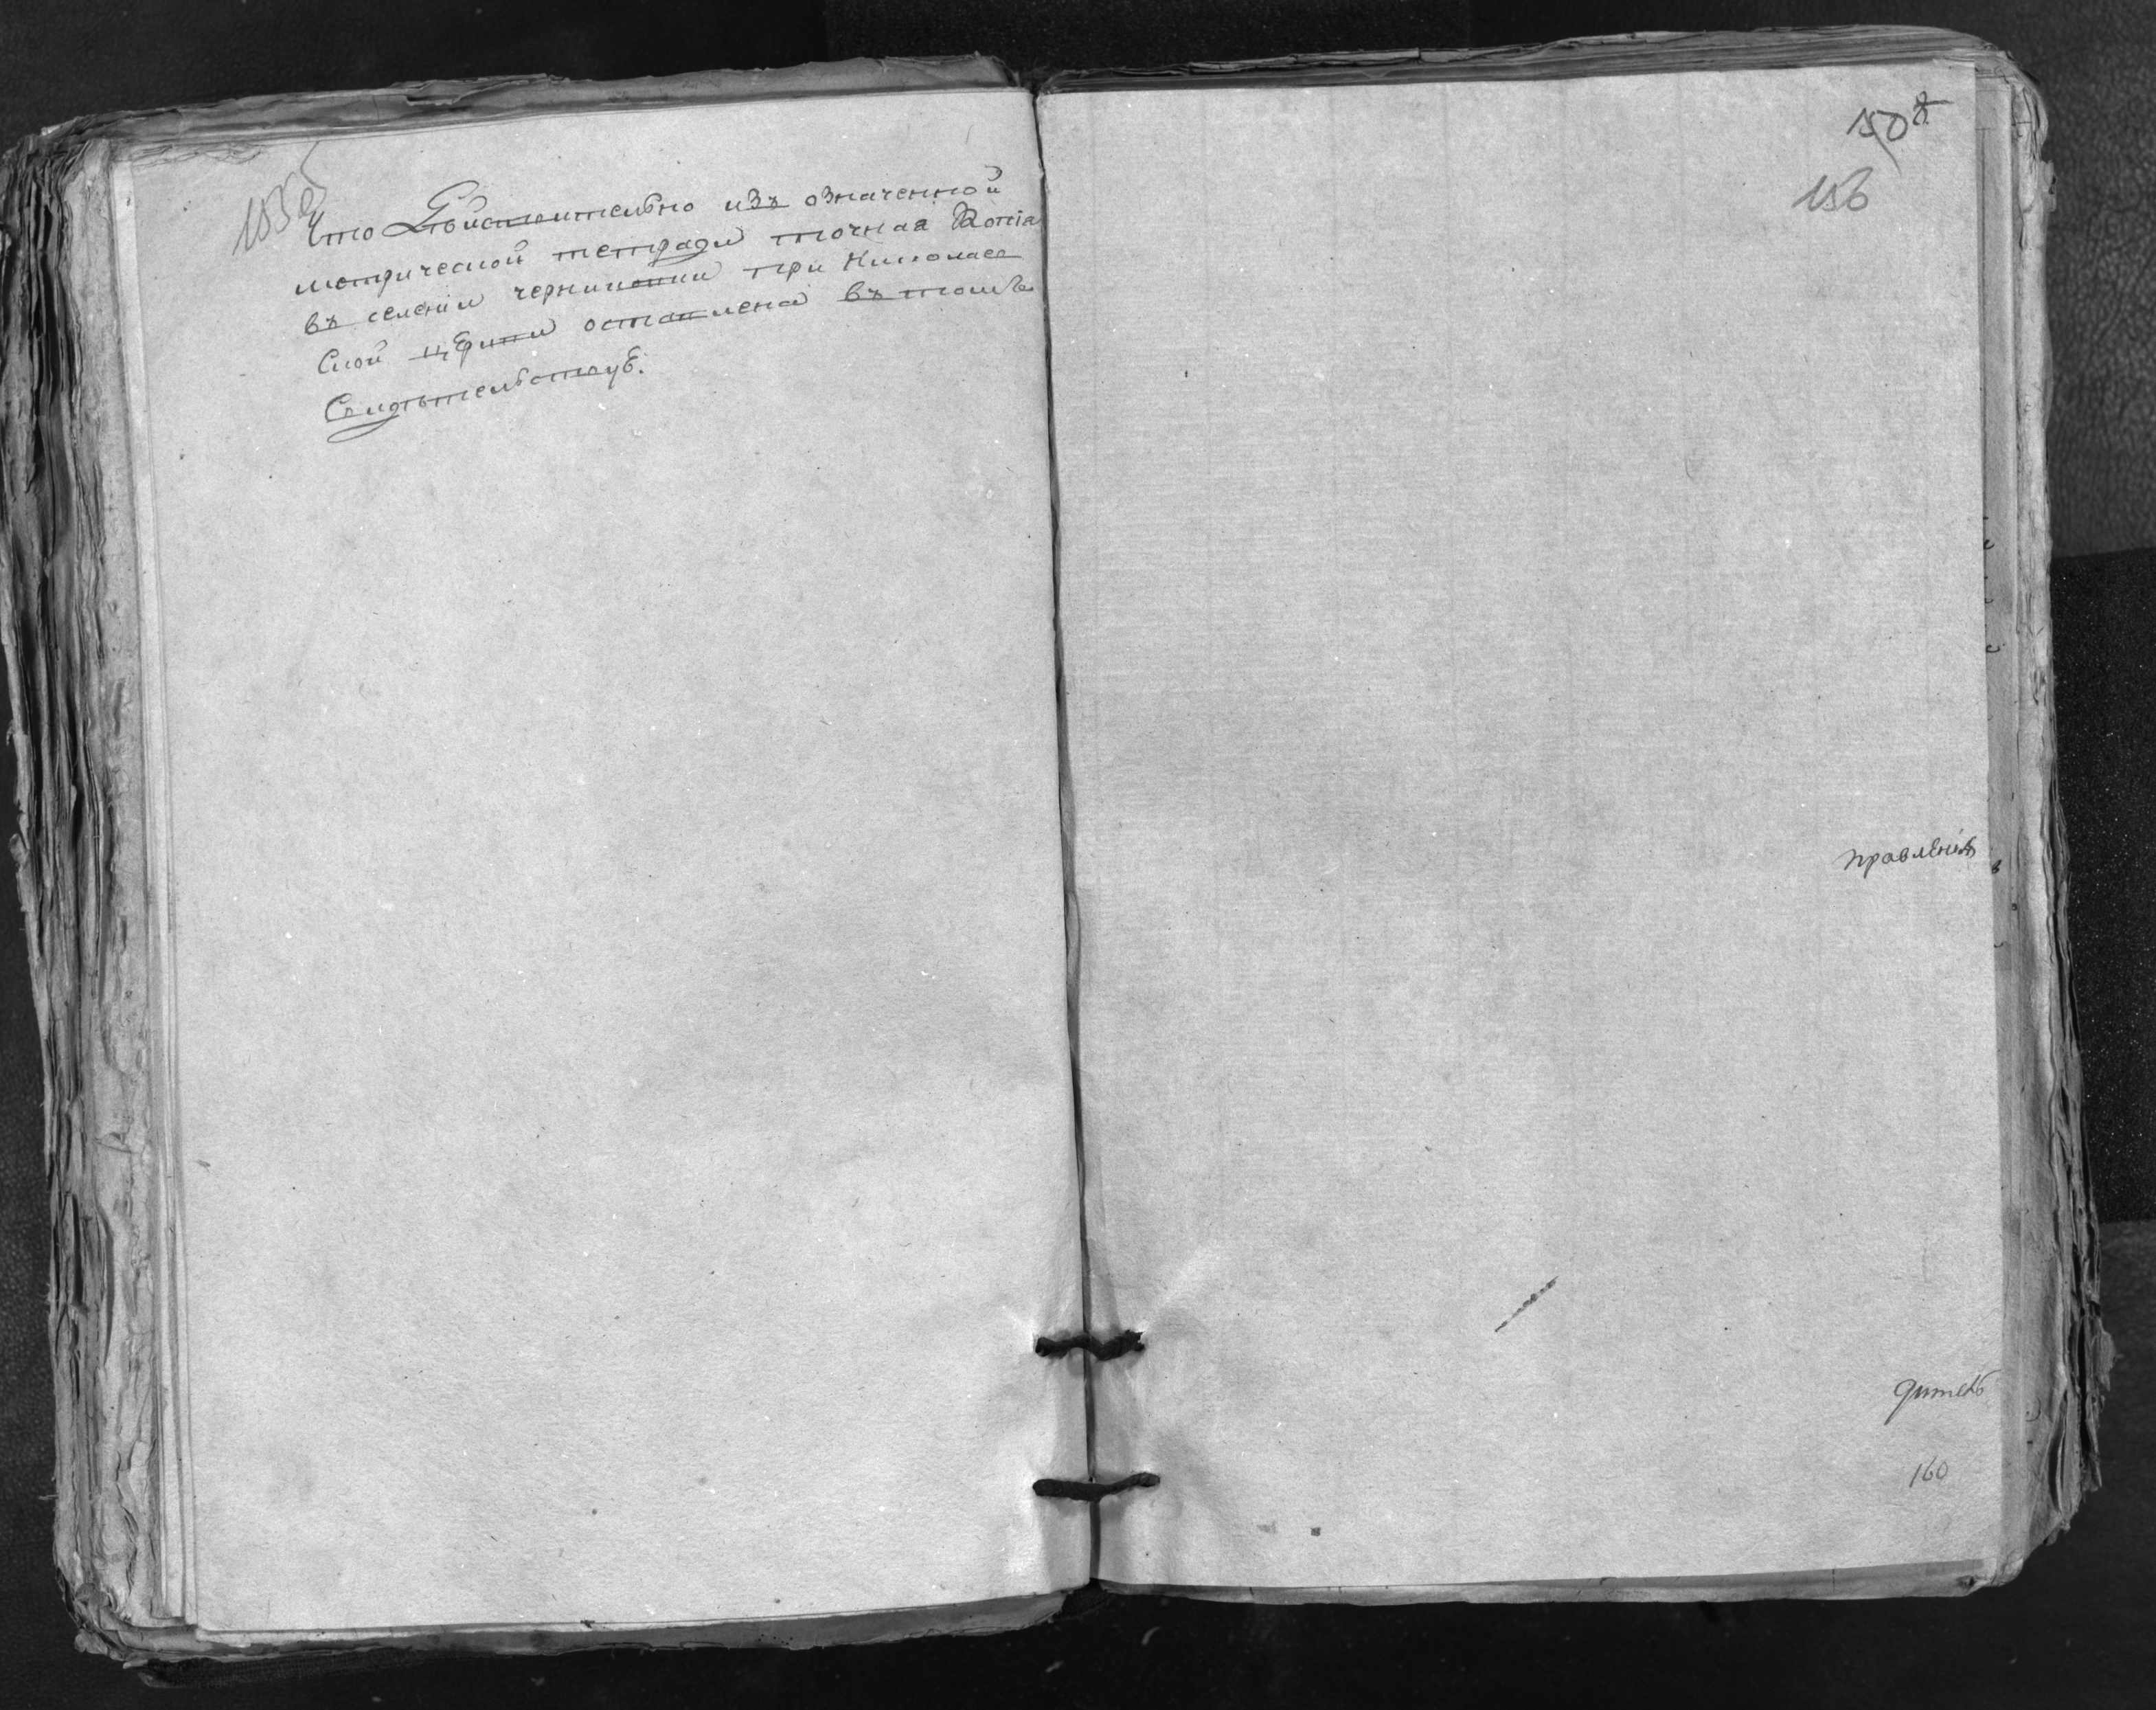 Что Дѣйствительно изъ означенной
метрической тетради точная Копія
въ селеніи чернишки при Николаев
ской церкви оставлена въ томъ
Свидѣтельствуѣ.
150
156
правленія
дитель
160